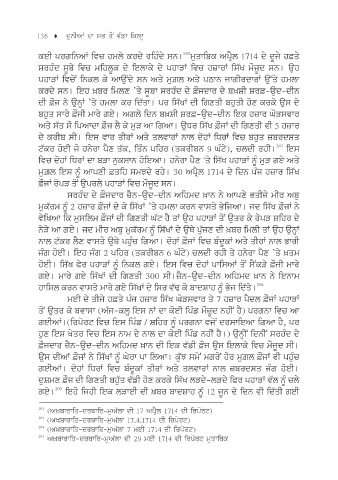 136 ♦ ਦੁਨੀਆਂ ਦਾ ਸਭ ਤੋਂ ਵੱਡਾ ਕਿਲ੍ਹਾ
ਕਈ ਪਰਗਨਿਆਂ ਵਿਚ ਹਮਲੇ ਕਰਦੇ ਰਹਿੰਦੇ ਸਨ। ਮੁਤਾਬਿਕ ਅਪ੍ਰੈਲ 1714 ਦੇ ਦੂਜੇ ਹਫ਼ਤੇ
ਸਰਹੰਦ ਸੂਬੇ ਵਿਚ ਮਹਿਲੂਕ ਦੇ ਇਲਾਕੇ ਦੇ ਪਹਾੜਾਂ ਵਿਚ ਹਜ਼ਾਰਾਂ ਸਿੱਖ ਮੌਜੂਦ ਸਨ। ਉਹ
ਪਹਾੜਾਂ ਵਿਚੋਂ ਨਿਕਲ ਕੇ ਆਉਂਦੇ ਸਨ ਅਤੇ ਮੁਗ਼ਲ ਅਤੇ ਪਠਾਨ ਜਾਗੀਰਦਾਰਾਂ ਉੱਤੇ ਹਮਲਾ
ਕਰਦੇ ਸਨ। ਇਹ ਖ਼ਬਰ ਮਿਲਣ 'ਤੇ ਸੂਬਾ ਸਰਹੰਦ ਦੇ ਫ਼ੌਜਦਾਰ ਦੇ ਬਖ਼ਸ਼ੀ ਸ਼ਰਫ਼-ਉਦ-ਦੀਨ
ਦੀ ਫ਼ੌਜ ਨੇ ਉਨ੍ਹਾਂ 'ਤੇ ਹਮਲਾ ਕਰ ਦਿੱਤਾ। ਪਰ ਸਿੱਖਾਂ ਦੀ ਗਿਣਤੀ ਬਹੁਤੀ ਹੋਣ ਕਰਕੇ ਉਸ ਦੇ
ਬਹੁਤ ਸਾਰੇ ਫ਼ੌਜੀ ਮਾਰੇ ਗਏ। ਅਗਲੇ ਦਿਨ ਬਖ਼ਸ਼ੀ ਸ਼ਰਫ਼-ਉਦ-ਦੀਨ ਇਕ ਹਜ਼ਾਰ ਘੋੜਸਵਾਰ
ਅਤੇ ਸੱਤ ਸੌ ਪਿਆਦਾ ਫ਼ੌਜ ਲੈ ਕੇ ਮੁੜ ਆ ਗਿਆ। ਉਧਰ ਸਿੱਖ ਫ਼ੌਜਾਂ ਦੀ ਗਿਣਤੀ ਵੀ 5 ਹਜ਼ਾਰ
ਦੇ ਕਰੀਬ ਸੀ। ਇਸ ਵਾਰ ਤੀਰਾਂ ਅਤੇ ਤਲਵਾਰਾਂ ਨਾਲ ਦੋਹਾਂ ਧਿਰਾਂ ਵਿਚ ਬਹੁਤ ਜ਼ਬਰਦਸਤ
ਟੱਕਰ ਹੋਈ ਜੋ ਹਨੇਰਾ ਪੈਣ ਤੱਕ, ਤਿੰਨ ਪਹਿਰ (ਤਕਰੀਬਨ 9 ਘੰਟੇ), ਚਲਦੀ ਰਹੀ। ਇਸ
ਵਿਚ ਦੋਹਾਂ ਧਿਰਾਂ ਦਾ ਬੜਾ ਨੁਕਸਾਨ ਹੋਇਆ। ਹਨੇਰਾ ਪੈਣ 'ਤੇ ਸਿੱਖ ਪਹਾੜਾਂ ਨੂੰ ਮੁੜ ਗਏ ਅਤੇ
ਮੁਗ਼ਲ ਇਸ ਨੂੰ ਆਪਣੀ ਫ਼ਤਹਿ ਸਮਝਦੇ ਰਹੇ। 30 ਅਪ੍ਰੈਲ 1714 ਦੇ ਦਿਨ ਪੰਜ ਹਜ਼ਾਰ ਸਿੱਖ
ਫ਼ੌਜਾਂ ਰੋਪੜ ਤੋਂ ਉਪਰਲੇ ਪਹਾੜਾਂ ਵਿਚ ਮੌਜੂਦ ਸਨ।
ਸਰਹੰਦ ਦੇ ਫ਼ੌਜਦਾਰ ਜ਼ੈਨ-ਉਦ-ਦੀਨ ਅਹਿਮਦ ਖ਼ਾਨ ਨੇ ਆਪਣੇ ਭਤੀਜੇ ਮੀਰ ਅਬੂ
ਮੁਕੱਰਮ ਨੂੰ 2 ਹਜ਼ਾਰ ਫ਼ੌਜਾਂ ਦੇ ਕੇ ਸਿੱਖਾਂ 'ਤੇ ਹਮਲਾ ਕਰਨ ਵਾਸਤੇ ਭੇਜਿਆ। ਜਦ ਸਿੱਖ ਫ਼ੌਜਾਂ ਨੇ
ਵੇਖਿਆ ਕਿ ਮੁਸਲਿਮ ਫ਼ੌਜਾਂ ਦੀ ਗਿਣਤੀ ਘੱਟ ਹੈ ਤਾਂ ਉਹ ਪਹਾੜਾਂ ਤੋਂ ਉਤਰ ਕੇ ਰੋਪੜ ਸ਼ਹਿਰ ਦੇ
ਨੇੜੇ ਆ ਗਏ। ਜਦ ਮੀਰ ਅਬੂ ਮੁਕੱਰਮ ਨੂੰ ਸਿੱਖਾਂ ਦੇ ਉਥੇ ਪੁੱਜਣ ਦੀ ਖ਼ਬਰ ਮਿਲੀ ਤਾਂ ਉਹ ਉਨ੍ਹਾਂ
ਨਾਲ ਟੱਕਰ ਲੈਣ ਵਾਸਤੇ ਉਥੇ ਪਹੁੰਚ ਗਿਆ। ਦੋਹਾਂ ਫ਼ੌਜਾਂ ਵਿਚ ਬੰਦੂਕਾਂ ਅਤੇ ਤੀਰਾਂ ਨਾਲ ਭਾਰੀ
ਜੰਗ ਹੋਈ। ਇਹ ਜੰਗ 2 ਪਹਿਰ (ਤਕਰੀਬਨ 6 ਘੰਟੇ) ਚਲਦੀ ਰਹੀ ਤੇ ਹਨੇਰਾ ਪੈਣ 'ਤੇ ਖ਼ਤਮ
ਹੋਈ। ਸਿੱਖ ਫੇਰ ਪਹਾੜਾਂ ਨੂੰ ਨਿਕਲ ਗਏ। ਇਸ ਵਿਚ ਦੋਹਾਂ ਪਾਸਿਆਂ ਤੋਂ ਸੈਂਕੜੇ ਫ਼ੌਜੀ ਮਾਰੇ
ਗਏ। ਮਾਰੇ ਗਏ ਸਿੱਖਾਂ ਦੀ ਗਿਣਤੀ 300 ਸੀ। ਜ਼ੈਨ-ਉਦ-ਦੀਨ ਅਹਿਮਦ ਖ਼ਾਨ ਨੇ ਇਨਾਮ
ਹਾਸਿਲ ਕਰਨ ਵਾਸਤੇ ਮਾਰੇ ਗਏ ਸਿੱਖਾਂ ਦੇ ਸਿਰ ਵੱਢ ਕੇ ਬਾਦਸ਼ਾਹ ਨੂੰ ਭੇਜ ਦਿੱਤੇ।
ਮਈ ਦੇ ਤੀਜੇ ਹਫ਼ਤੇ ਪੰਜ ਹਜ਼ਾਰ ਸਿੱਖ ਘੋੜਸਵਾਰ ਤੇ 7 ਹਜ਼ਾਰ ਪੈਦਲ ਫ਼ੌਜਾਂ ਪਹਾੜਾਂ
ਤੋਂ ਉਤਰ ਕੇ ਬਵਾਸਾ (ਅੱਜ-ਕਲ੍ਹ ਇਸ ਨਾਂ ਦਾ ਕੋਈ ਪਿੰਡ ਮੌਜੂਦ ਨਹੀਂ ਹੈ) ਪਰਗਨਾ ਵਿਚ ਆ
ਗਈਆਂ।(ਰਿਪੋਰਟ ਵਿਚ ਇਸ ਪਿੰਡ / ਸ਼ਹਿਰ ਨੂੰ ਪਰਗਨਾ ਵਜੋਂ ਦਰਸਾਇਆ ਗਿਆ ਹੈ, ਪਰ
ਹੁਣ ਇਸ ਖੇਤਰ ਵਿਚ ਇਸ ਨਾਮ ਦੇ ਨਾਲ ਦਾ ਕੋਈ ਪਿੰਡ ਨਹੀਂ ਹੈ।) ਉਨ੍ਹੀਂ ਦਿਨੀਂ ਸਰਹੰਦ ਦੇ
ਫ਼ੌਜਦਾਰ ਜ਼ੈਨ-ਉਦ-ਦੀਨ ਅਹਿਮਦ ਖ਼ਾਨ ਦੀ ਇਕ ਵੱਡੀ ਫ਼ੌਜ ਉਸ ਇਲਾਕੇ ਵਿਚ ਮੌਜੂਦ ਸੀ।
ਉਸ ਦੀਆਂ ਫ਼ੌਜਾਂ ਨੇ ਸਿੱਖਾਂ ਨੂੰ ਘੇਰਾ ਪਾ ਲਿਆ। ਕੁੱਝ ਸਮੇਂ ਮਗਰੋਂ ਹੋਰ ਮੁਗ਼ਲ ਫ਼ੌਜਾਂ ਵੀ ਪਹੁੰਚ
ਗਈਆਂ। ਦੋਹਾਂ ਧਿਰਾਂ ਵਿਚ ਬੰਦੂਕਾਂ ਤੀਰਾਂ ਅਤੇ ਤਲਵਾਰਾਂ ਨਾਲ ਜ਼ਬਰਦਸਤ ਜੰਗ ਹੋਈ।
ਦੁਸ਼ਮਣ ਫ਼ੌਜ ਦੀ ਗਿਣਤੀ ਬਹੁਤ ਵੱਡੀ ਹੋਣ ਕਰਕੇ ਸਿੱਖ ਲੜਦੇ-ਲੜਦੇ ਫਿਰ ਪਹਾੜਾਂ ਵੱਲ ਨੂੰ ਚਲੇ
ਗਏ। ਇਹੋ ਜਿਹੀ ਇਕ ਲੜਾਈ ਦੀ ਖ਼ਬਰ ਬਾਦਸ਼ਾਹ ਨੂੰ 12 ਜੂਨ ਦੇ ਦਿਨ ਵੀ ਦਿੱਤੀ ਗਈ
(ਅਖ਼ਬਾਰਾਤਿ-ਦਰਬਾਰਿ-ਮੁਅੱਲਾ ਦੀ 17 ਅਪ੍ਰੈਲ 1714 ਦੀ ਰਿਪੋਰਟ)
(ਅਖ਼ਬਾਰਾਤਿ-ਦਰਬਾਰਿ-ਮੁਅੱਲਾ 17.4.1714 ਦੀ ਰਿਪੋਰਟ)
(ਅਖ਼ਬਾਰਾਤਿ-ਦਰਬਾਰਿ-ਮੁਅੱਲਾ 7 ਮਈ 1714 ਦੀ ਰਿਪੋਰਟ)
ਅਖ਼ਬਾਰਾਤਿ-ਦਰਬਾਰਿ-ਮੁਅੱਲਾ ਵੀ 29 ਮਈ 1714 ਦੀ ਰਿਪੋਰਟ ਮੁਤਾਬਿਕ